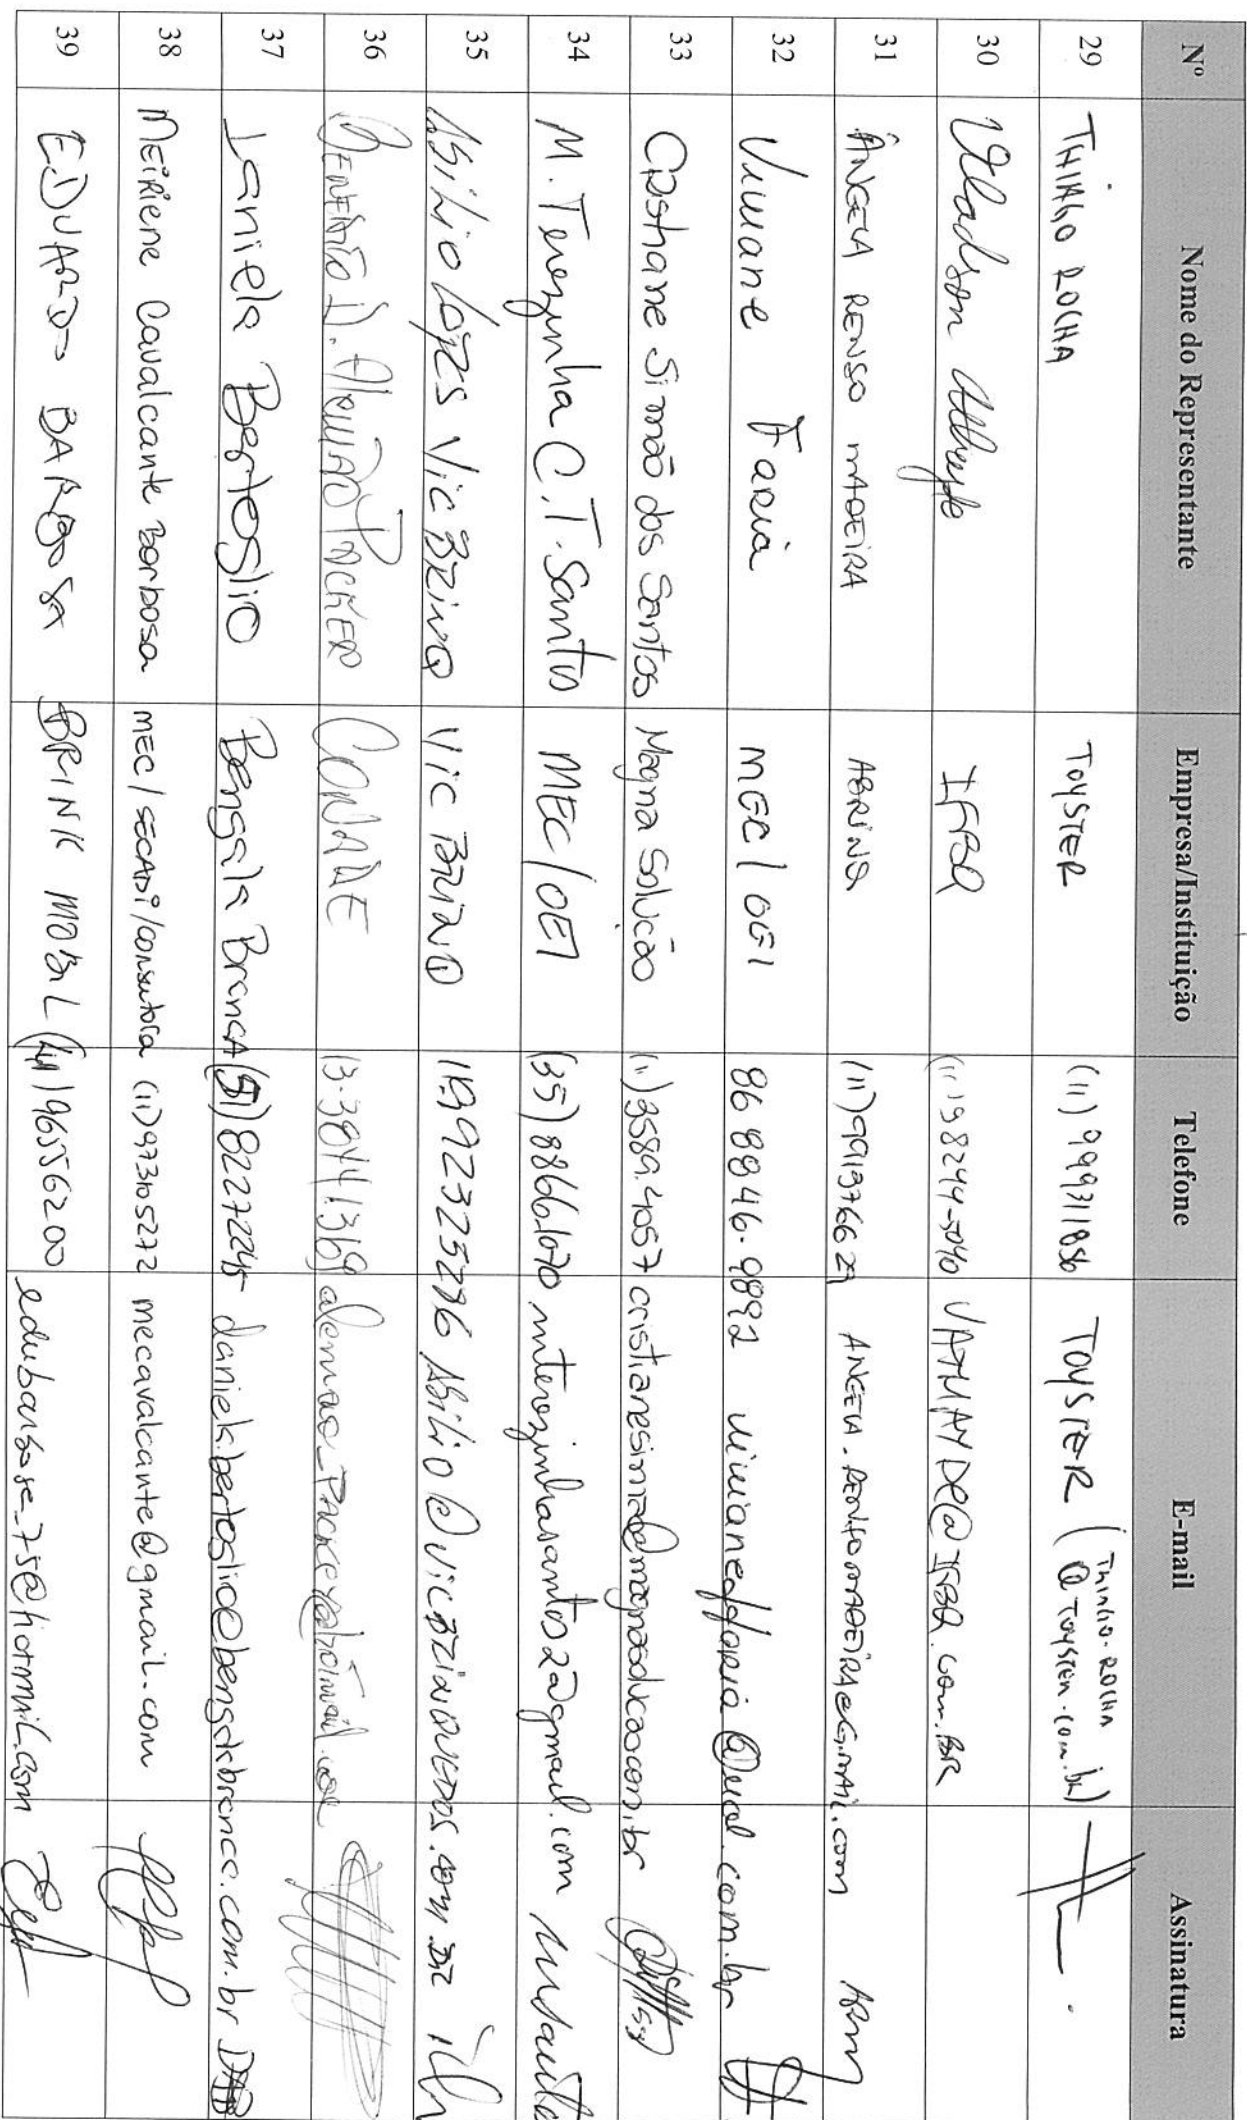 Nº Nome do Representante Empresa/Instituição Telefone E-mail Assinatura
29 THIAGO ROCHA TOYSTER (11) 999311856 TOYSTER (THIAGO.ROCHA @TOYSTER.COM.BR)
30 IFBQ (11) 98244-5040 @IFBQ.COM.BR
31 ÂNGELA RENSO MADEIRA ABRINQ (11) 991976629 ANGELA.RENSOMADEIRA@GMAIL.COM
32 Viviane Faria MEC/OEI 86 8846-9892 vivianeffaria@uol.com.br
33 Cristiane Simão dos Santos Magna Solução (11) 3589.4057 cristianesimao@magnasolucao.com.br
34 M. Terezinha C. T. Santos MEC/OEI (35) 88661070 mterezinhasantos2@gmail.com
35 Abilio Lopes VIC BRINQ VIC BRINQ 11992325276 Abilio@VICBRINQUEDOS.COM.BR
36 CONADE 13.38441369 alemao_Packer@hotmail.com
37 Daniela Bertoglio Bengala Branca (51) 82272245 daniela.bertoglio@bengalabranca.com.br
38 Meiriene Cavalcante Barbosa MEC/SECADI/consultora (11) 973105272 mecavalcante@gmail.com
39 EDUARDO BARBOSA BRINK MOBIL (41) 96556200 edubarbose_75@hotmail.com